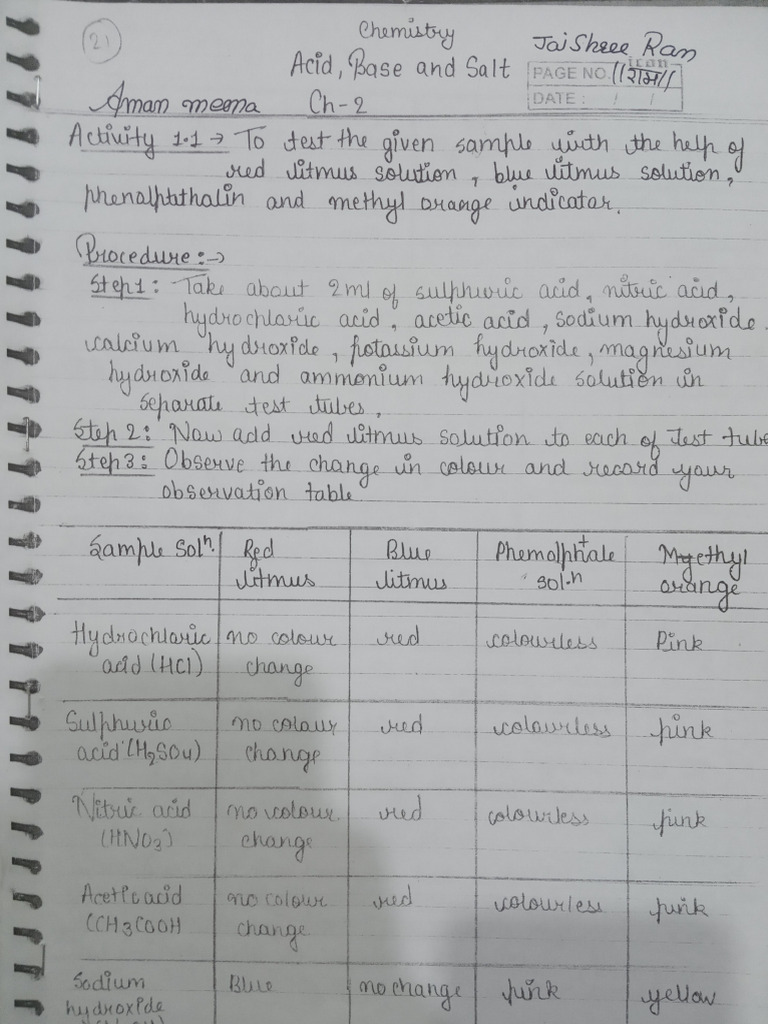 21
Chemistry
Jai Shree Ram
Acid, Base and Salt
PAGE NO. //राम//
DATE : / /
Aman meena Ch-2
Activity 1.1 → To test the given sample with the help of
red litmus solution, blue litmus solution,
phenolphthalin and methyl orange indicator.
Procedure :→
Step 1 : Take about 2ml of sulphuric acid, nitric acid,
hydrochlaric acid, acetic acid, sodium hydroxide
calcium hydroxide, potassium hydroxide, magnesium
hydroxide and ammonium hydroxide solution in
separate test tubes,
Step 2 : Now add red litmus solution to each of test tube
Step 3 : Observe the change in colour and record your
observation table
Sample Solⁿ. Red Blue Phemolphtale Methyl
litmus litmus sol.n orange
Hydrochlaric no colour red colourless Pink
acid (HCl) change
Sulphuric no colour red colourless pink
acid (H2SO4) change
Nitric acid no colour red colourless pink
(HNO3) change
Acetic acid no colour red colourless pink
(CH3COOH change
Sodium Blue no change pink yellow
hydroxide